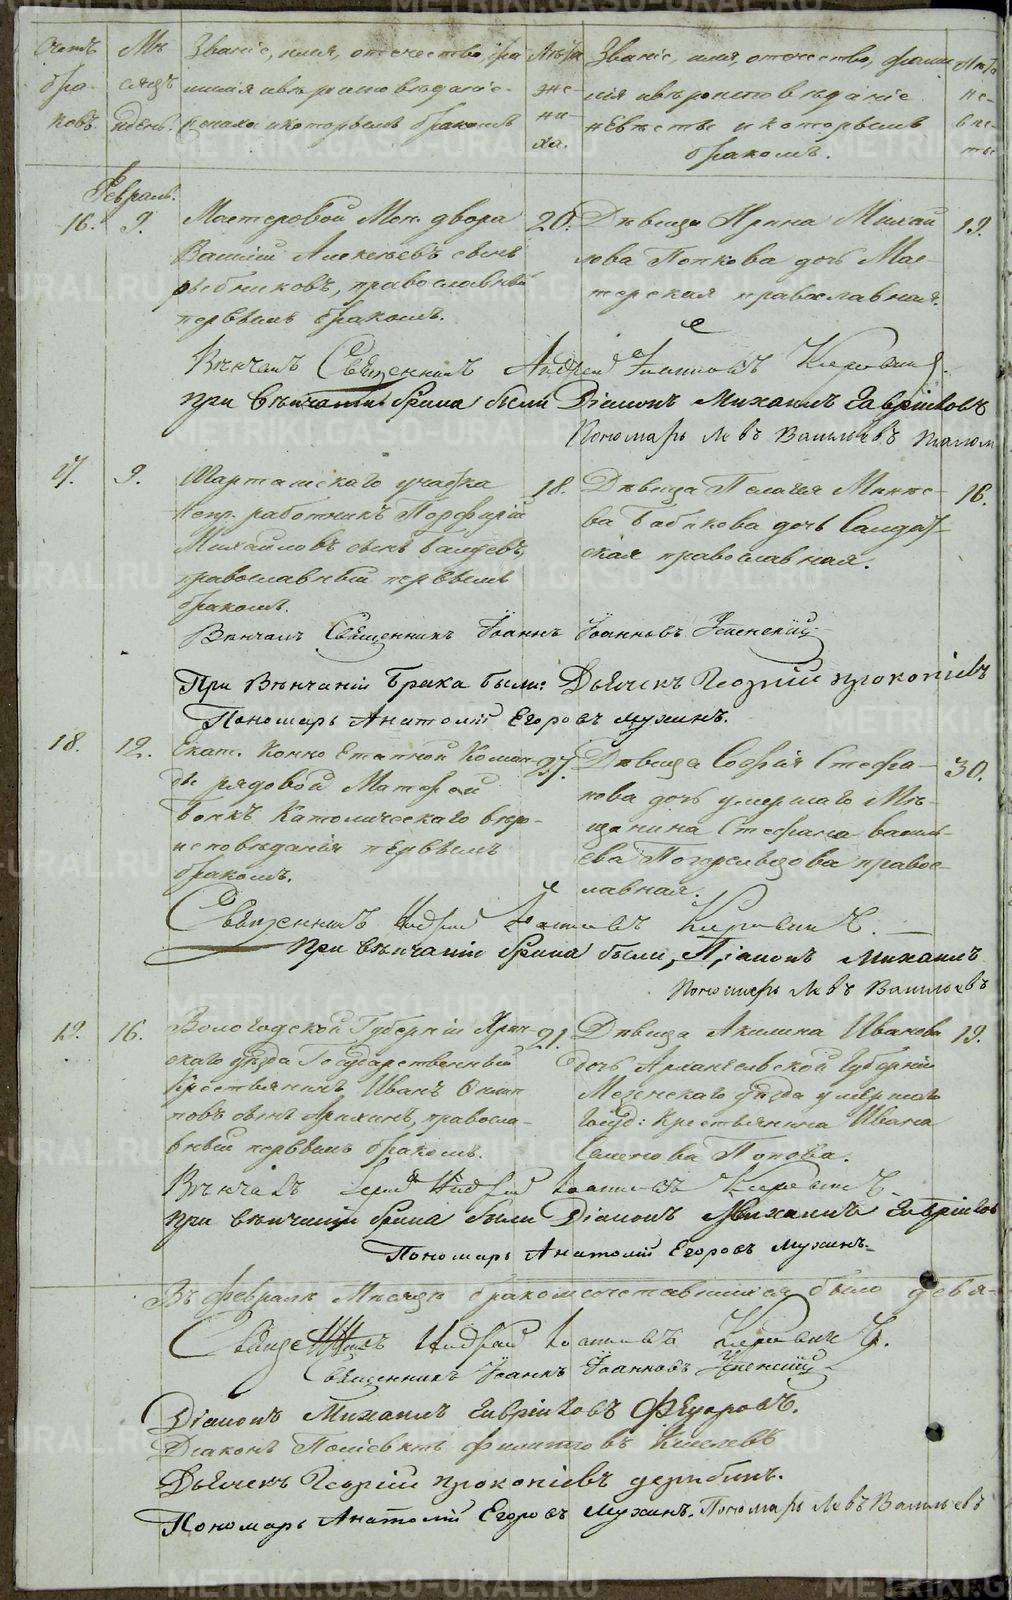 Счетъ бра- ковъ.
Мѣ сяцъ день.
Званіе, имя, отечество, фа
милія и вѣроисповѣданіе
жениха и которымъ бракомъ
Лѣта же- ни- ха.
Званіе, имя, отечество, фами
лія и вѣроисповѣданіе
невѣсты и которымъ
бракомъ.
Лѣта не- вѣс- ты
Февраль.
16. 9. Мастеровой Мон. двора
Василій Алексѣевъ сынъ
рыбниковъ, православный
первымъ бракомъ.
20.
Дѣвица Ирина Михай
лова Попкова дочь Мас-
терская православная.
19.
Вѣнчалъ Священникъ Андрей Іоанновъ
при вѣнчаніи брака были Діаконъ Михаилъ Гавріиловъ
Пономарь Левъ Васильевъ
17. 9. Шарташскаго участка
Непр. работникъ Порфирій
Михайловъ сынъ
православный первымъ
бракомъ.
18.
Дѣвица Пелагія Минѣе-
ва Бабикова дочь Солдат-
ская православная.
16.
Вѣнчалъ Священникъ Іоаннъ Іоанновъ Успенскій
При Вѣнчаніи Брака были: Дьячекъ Георгій прокопіевъ
Пономарь Анатолій Егоровъ мухинъ.
18. 12. Екат. Конно Етапной Коман-
ды рядовой Матфей
Бокъ Католическаго вѣро-
исповѣданія первымъ
бракомъ.
27.
Дѣвица Софія Стефа-
нова дочь умершаго Мѣ-
щанина Стефана Василь-
ева Погорѣльцова правос-
лавная.
30.
Священникъ Андрей Іоанновъ
при вѣнчаніи брака были, Діаконъ Михаилъ
Пономарь Левъ Васильевъ
19. 16. Вологодской Губерніи Ярен-
скаго уѣзда Государственный
Крестьянинъ Иванъ Филип
повъ сынъ, правосла-
вный первымъ бракомъ.
21.
Дѣвица Акилина Иванова
дочь Архангельской Губерніи
Мезенскаго уѣзда умершаго
Госуд: Крестьянина Ивана
Семенова Попова.
19.
Вѣнчалъ Іерей Андрей Іоанновъ
при вѣнчаніи брака были Діаконъ Михаилъ Гавріиловъ
Пономарь Анатолій Егоровъ Мухинъ.
Въ февралѣ Мѣсяцѣ бракомсочетавшихся было девя-
Священникъ Андрей Іоанновъ
Священникъ Іоаннъ Іоанновъ Успенскій
Діаконъ Михаилъ Гавріиловъ Ѳедоровъ.
Діаконъ Поліевктъ Филипповъ
Дьячекъ Георгій прокопіевъ дерябинъ.
Пономарь Анатолій Егоровъ мухинъ. Пономарь Левъ Васильевъ
METRIKI.GASO-URAL.RU